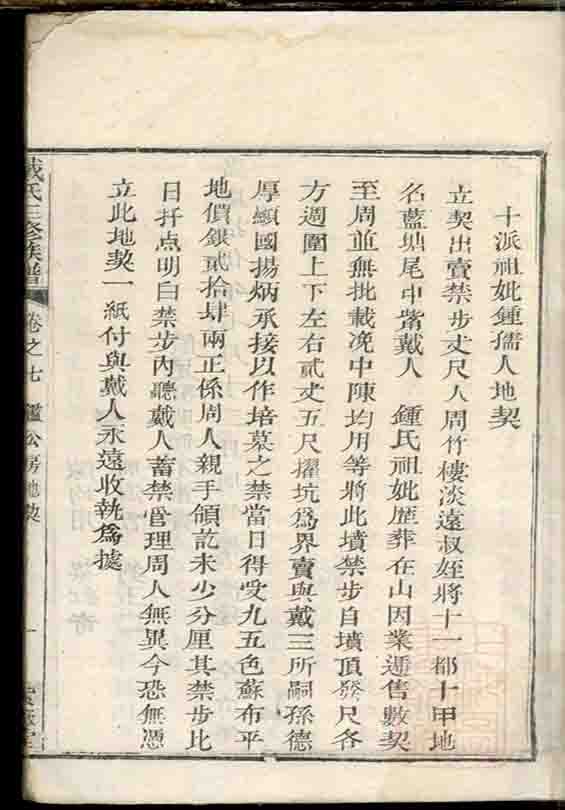 十派祖妣鍾孺人地契
立契出賣禁步丈尺人周竹樓淡遠叔姪將十一都十甲地
名藍塘尾中嘴戴人 鍾氏祖妣歴葬在山因業逓售數契
至周並無批載凂中陳均用等將此墳禁步自墳頂發尺各
方週圍上下左右貳丈五尺擢坑爲界賣與戴三所嗣孫德
厚纘國揚炳承接以作培墓之禁當日得受九五色蘇布平
地價銀貳拾肆兩正係周人親手領訖未少分厘其禁步比
日扦点明白禁步內聽戴人蓄禁管理周人無異今恐無憑
立此地契一紙付與戴人永遠收執爲據
戴氏三修族譜 卷之七 鑑公房地契 一